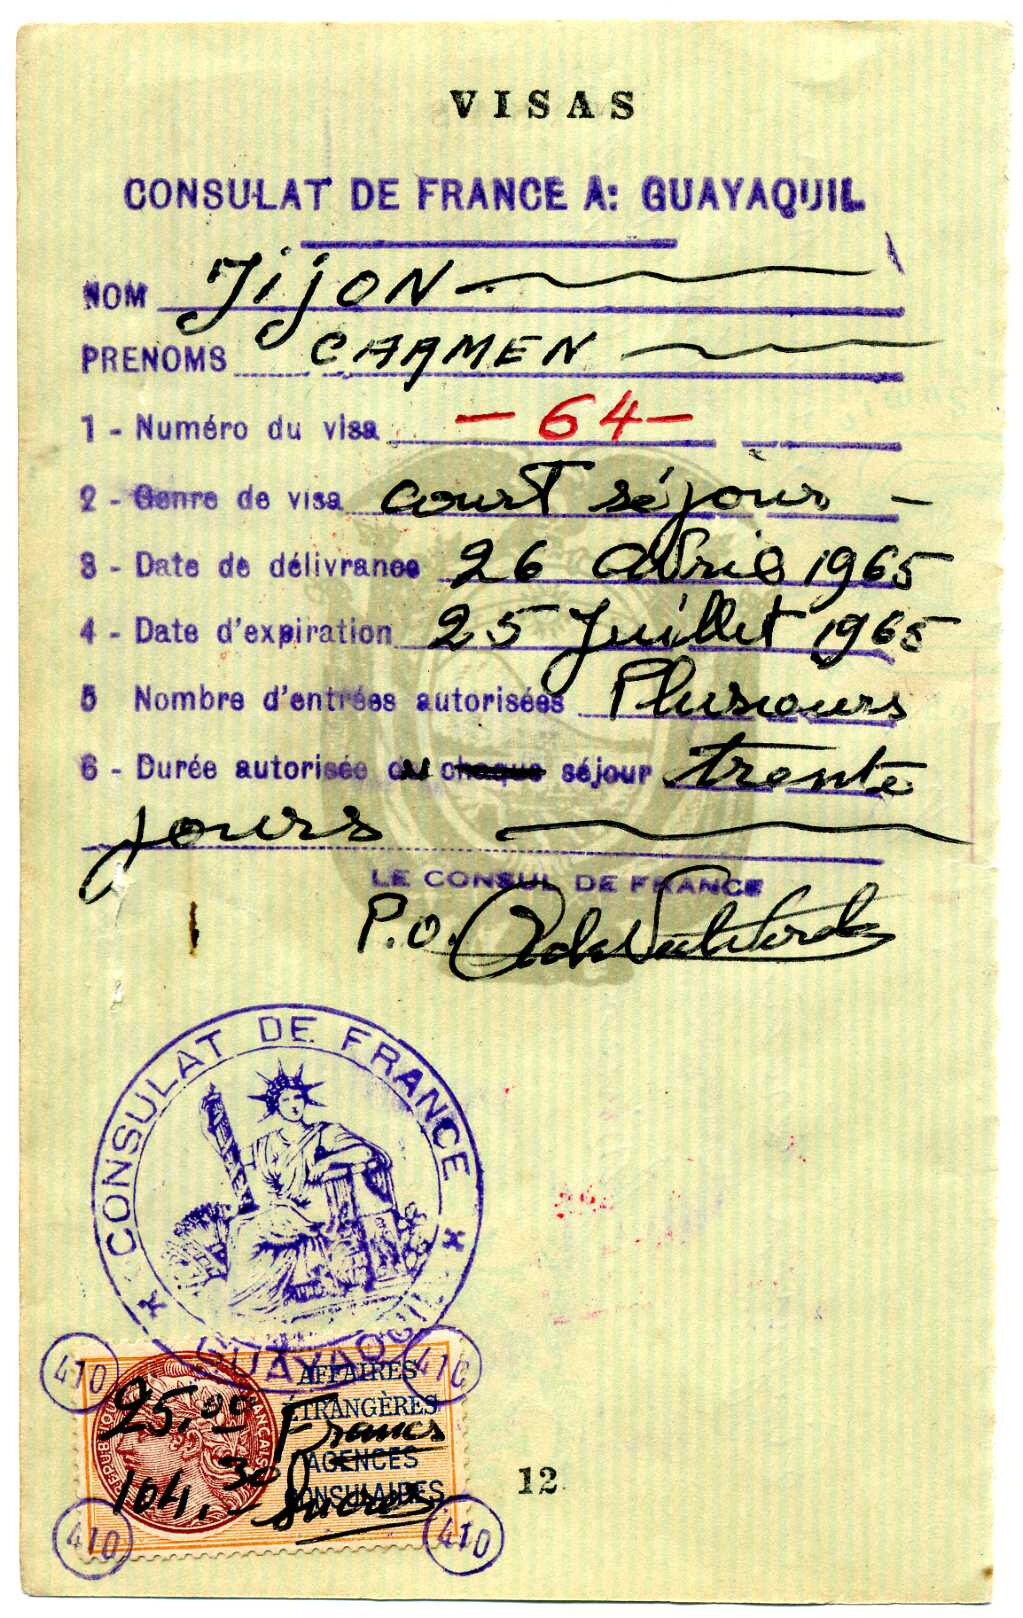 VISAS
CONSULAT DE FRANCE A: GUAYAQUIL
NOM Jijon
PRENOMS CARMEN
1 - Numéro du visa - 64 -
2 - Genre de visa court séjour -
3 - Date de délivrance 26 avril 1965
4 - Date d'expiration 25 Juillet 1965
5 Nombre d'entrées autorisées Plusieurs
6 - Durée autorisée du chaque séjour trente
jours
LE CONSUL DE FRANCE
P.O.
CONSULAT DE FRANCE
GUAYAQUIL
410 410
AFFAIRES
ÉTRANGÈRES
AGENCES
CONSULAIRES
25,00 Francs
104,30 Sucres
410 410
12